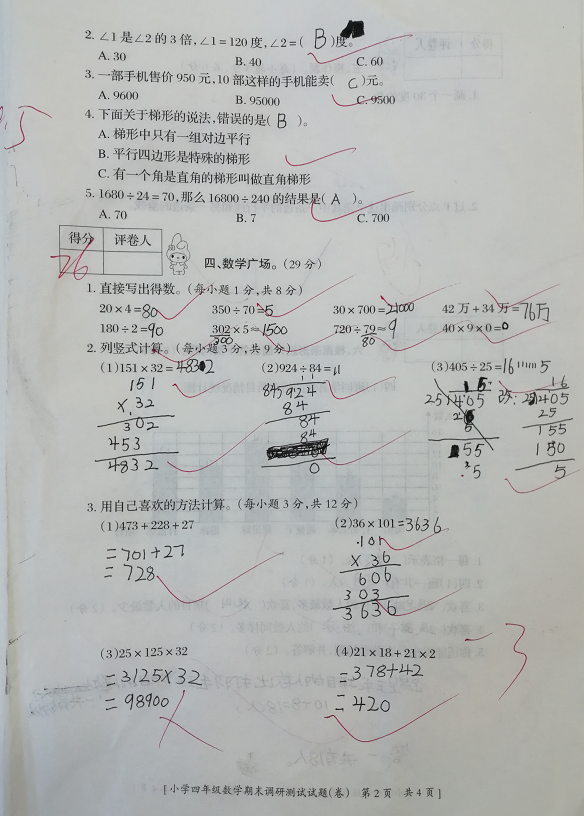 2. ∠1是∠2的3倍,∠1=120度,∠2=( B )度。
A. 30 B. 40 C. 60
3. 一部手机售价950元,10部这样的手机能卖( C )元。
A. 9600 B. 95000 C. 9500
4. 下面关于梯形的说法,错误的是( B )。
A. 梯形中只有一组对边平行
B. 平行四边形是特殊的梯形
C. 有一个角是直角的梯形叫做直角梯形
5. 1680÷24=70,那么16800÷240的结果是( A )。
A. 70 B. 7 C. 700
得分 评卷人
26
四、数学广场。(29分)
1. 直接写出得数。(每小题1分,共8分)
20×4=80 350÷70=5 30×700=21000 42万+34万=76万
180÷2=90 302×5≈1500 720÷79≈9 40×9×0=0
300 80
2. 列竖式计算。(每小题3分,共9分)
(1)151×32=4832 (2)924÷84=11 (3)405÷25=16······5
151
×32
302
453
4832
11
84)924
84
84
84
0
改:
16
25)405
25
155
150
5
3. 用自己喜欢的方法计算。(每小题3分,共12分)
(1)473+228+27 (2)36×101=3636
=701+27
=728
101
×36
606
303
3636
(3)25×125×32 (4)21×18+21×2
=3125×32 =378+42
=98900 =420
-3
[小学四年级数学期末调研测试试题(卷) 第2页 共4页]